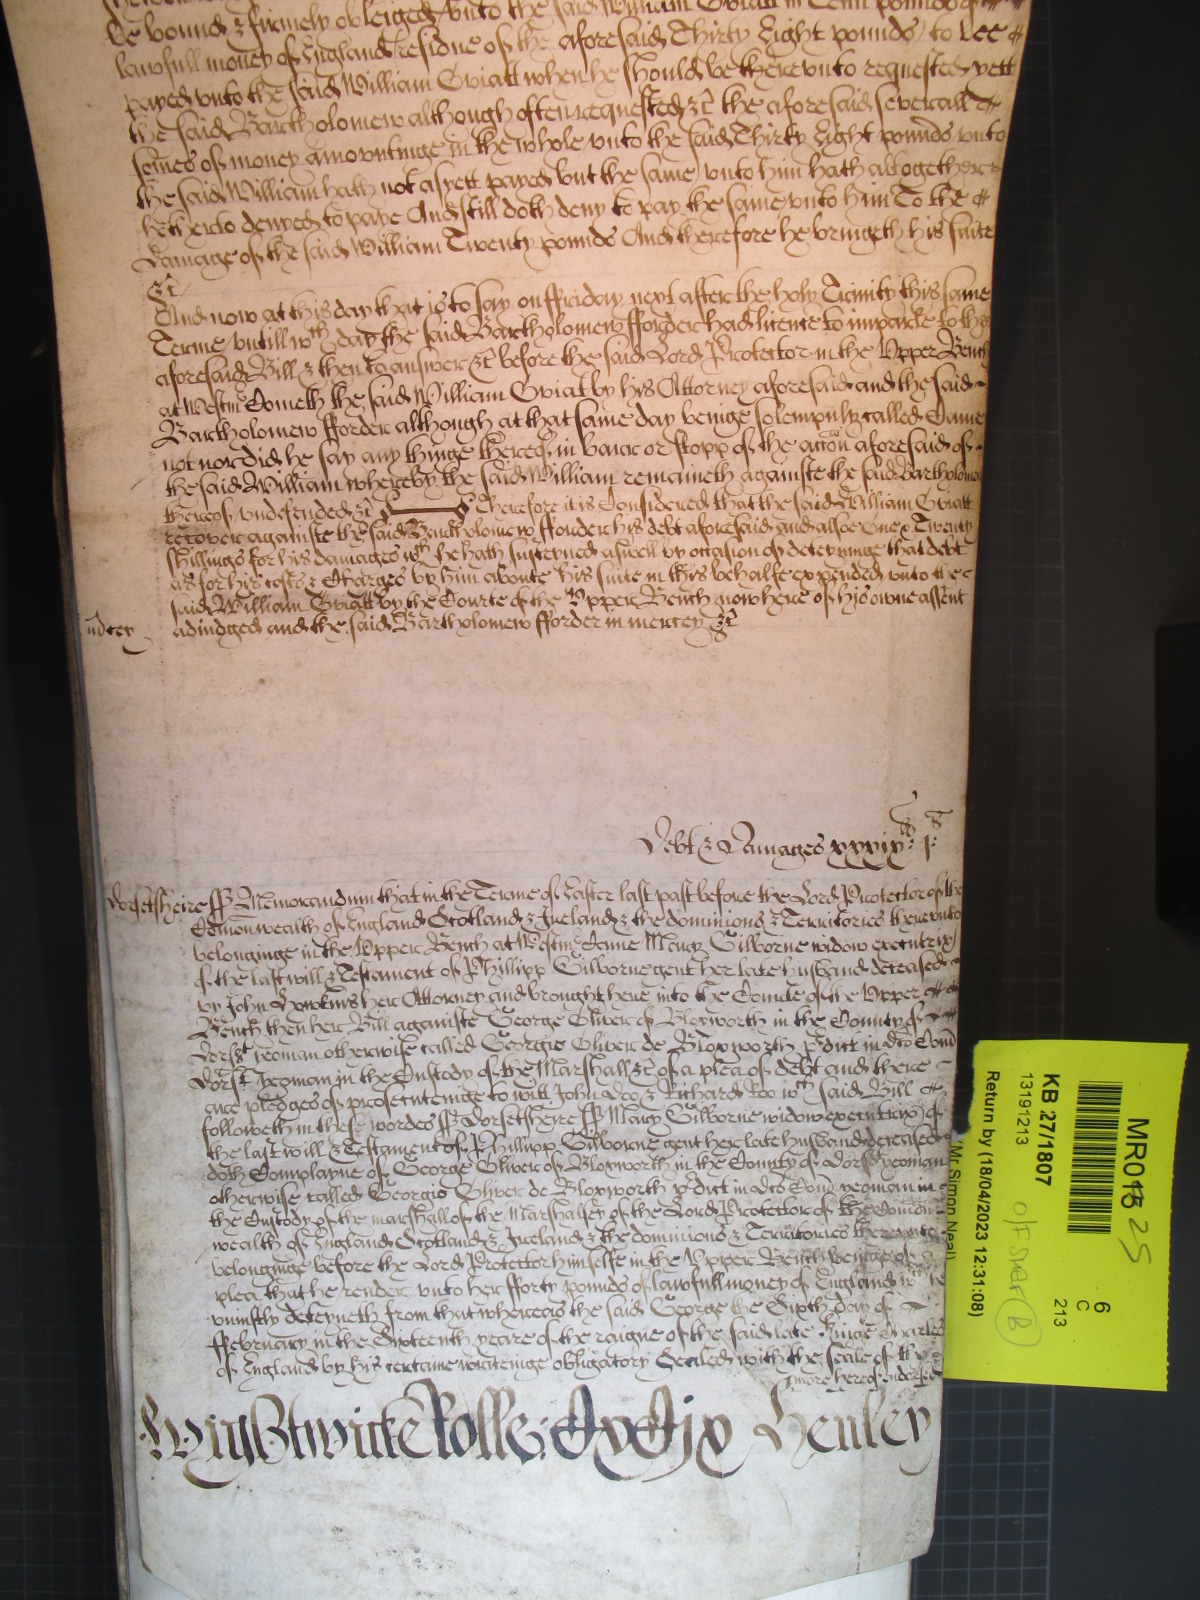 be bound & firmely obleiged vnto the said William Gviatt in Tenn pounds of
lawfull money of England residue of the aforesaid Thirty Eight pounds to bee
payed vnto the said William Gviatt when he should be therevnto requested yett
the said Bartholomew although often requested &c the aforesaid severall
somes of money amountinge in the whole vnto the said Thirty Eight pounds vnto
the said William hath not as yett payed but the same vnto him hath altogether
hetherto denyed to paye And still doth deny to pay the same vnto him To the
damage of the said William Twenty pounds And therefore he bringeth his suite
&c
And now at this day that is to say on ffriday next after the holy Trinity this same
Terme vntill wch day the said Bartholomew fforder had licence to imparle to the
aforesaid Bill & then to answer &c before the said Lord Protector in the Upper Bench
at Westmr Cometh the said William Gviatt by his Attorney aforesaid and the said
Bartholomew fforder although at that same day beinge solempnly called Came
not nor did he say any thinge thereof in barr or stopp of the accon aforesaid of
the said William whereby the said William remaineth againste the said Bartholomew
thereof vndefended &c Therefore it is Considered that the said William Gviatt
recover againste the said Bartholomew fforder his debt aforesaid and allsoe Twenty
shillings for his damages wch he hath susteyned aswell by occasion of deteyninge that debt
as for his costs & Charges by him aboute his suite in this behalfe expended vnto the
said William Gviatt by the Courte of the Upper Bench now here of his owne assent
adiudged and the said Bartholomew fforder in mercey &c
Debt & Damages xxxix li: s:
Dorsetsheire ss Memorandum that in the Terme of Easter last past before the Lord Protector of the
Comonwealth of England Scotland & Ireland & the dominions & Territories therevnto
belonginge in the Upper Bench at Westmr Came Mary Gilborne widow executrix
of the last will & Testament of Phillipp Gilborne gent her late husband deceased
by John Hawkins her Attorney and brought here into the Courte of the Upper
Bench then her Bill againste George Oliver of Bloxworth in the County of
Dorst yeoman otherwise called Georgio Oliver de Bloxworth pdict in dco Com
Dorst yeoman in the Custody of the Marshall &c of a plea of debt and there
are pledges of prosecuteinge to witt John Doo & Richard Roo wch said Bill
followeth in these wordes ss Dorsetsheire ss Mary Gilborne widow executrix of
the last will & Testament of Phillipp Gilborne gent her late husband deceased
doth Complayne of George Oliver of Bloxworth in the County of Dorst yeoman
otherwise called Georgio Oliver de Bloxworth pdict in dco Com yeoman in
the Custody of the marshall of the Marshalsey of the Lord Protector of the Comon
wealth of England Scotland & Ireland & the dominions & Territories therevnto
belonginge before the Lord Protector himselfe in the Upper Bench beinge of a
plea that he render vnto her fforty pounds of lawfull money of England wch he
vniustly deteyneth from that whereas the said George the Sixth day of
ffebruary in the Sixteenth yeare of the raigne of the said late Kinge Charles
of England by his certaine writeinge obligatory Sealed with the seale of the
more hereof endorsed
Wightwicke Rolle: Henley
MR015 25
6
C
213
KB 27/1807
13191213
Return by (18/04/2023 12:31:08)
(Mr Simon Neal)
B